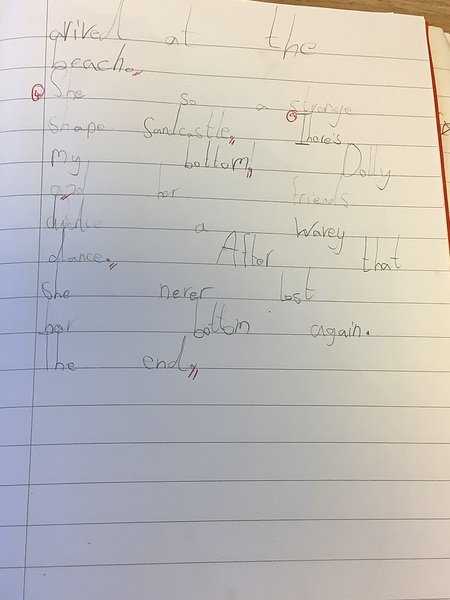 arived at the
beach.
She so a strange
shape Sandcastle. There's
my bottom! Dolly
and her friends
a Wavey
dance. After that
She never lost
her bottom again.
The end.